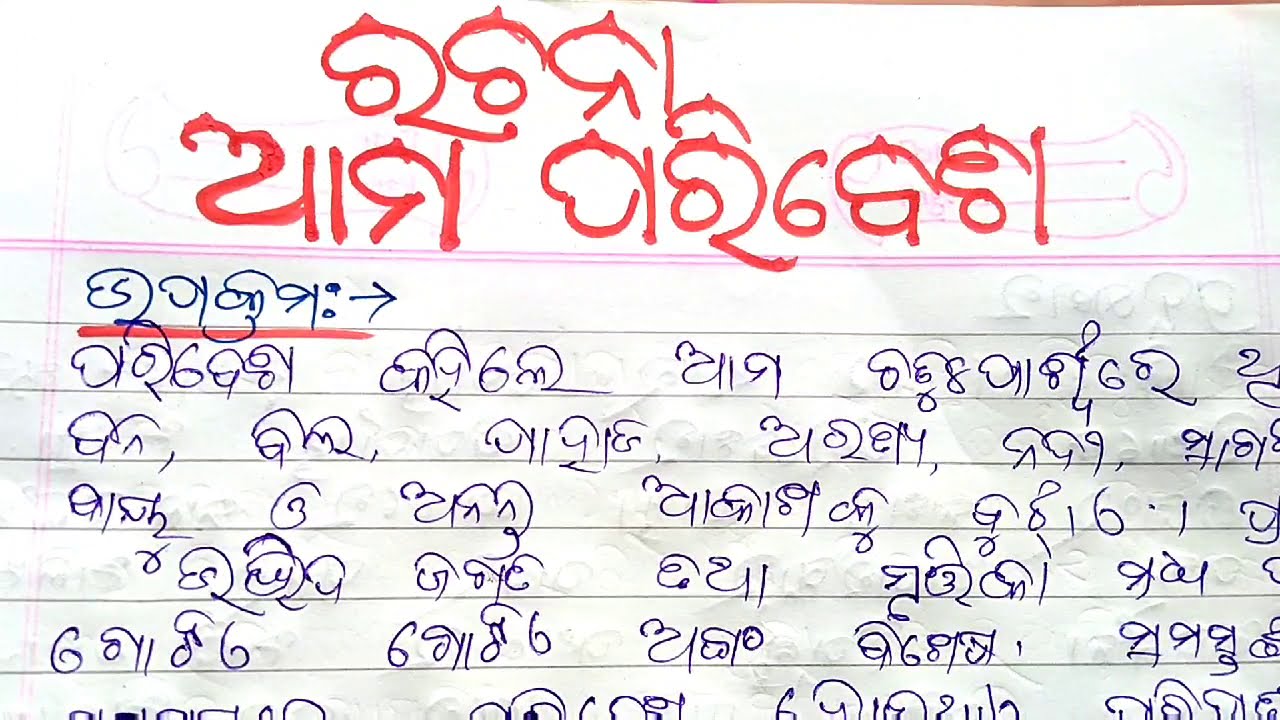 ରଚନା
ଆମ ପରିବେଶ
ଉପକ୍ରମଃ→
ପରିବେଶ କହିଲେ ଆମ ଚତୁଃପାର୍ଶ୍ୱରେ
ବନ, ବିଲ, ପାହାଡ, ଅରଣ୍ୟ, ନଦୀ,
ବାୟୁ ଓ ଅନନ୍ତ ଆକାଶକୁ ବୁଝାଏ ।
ଉଦ୍ଭିଦ ଜଗତ ତଥା ମୃତ୍ତିକା ମଧ୍ୟ
ଗୋଟିଏ ଗୋଟିଏ ଅଙ୍ଗ ବିଶେଷ ।